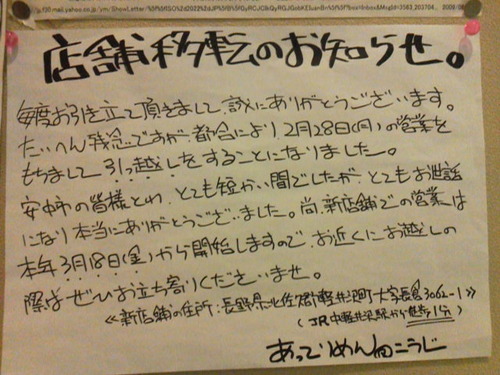 店舗移転のお知らせ。
毎度お引き立て頂きまして誠にありがとうございます。
たいへん残念ですが、都合により2月28日(月)の営業を
もちまして引っ越しをすることになりました。
安中の皆様とわ、とても短かい間でしたが、とてもお世話
になり本当にありがとうございました。尚、新店舗での営業は
本年3月18日(金)から開始しますので、お近くにお越しの
際はぜひお立ち寄りくださいませ。
≪新店舗の住所:長野県北佐久郡軽井沢町大字長倉3062-1≫
(JR中軽井沢駅から徒歩1分)
あってりめんこうじ